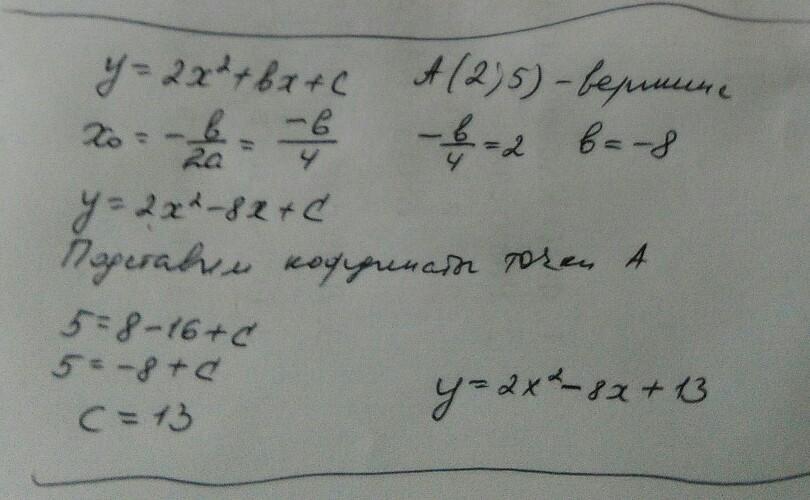 y = 2x² + bx + c    A(2; 5) - вершина
x₀ = -b/2a = -b/4    -b/4 = 2    b = -8
y = 2x² - 8x + c
Подставим координаты точки A
5 = 8 - 16 + c
5 = -8 + c
c = 13    y = 2x² - 8x + 13